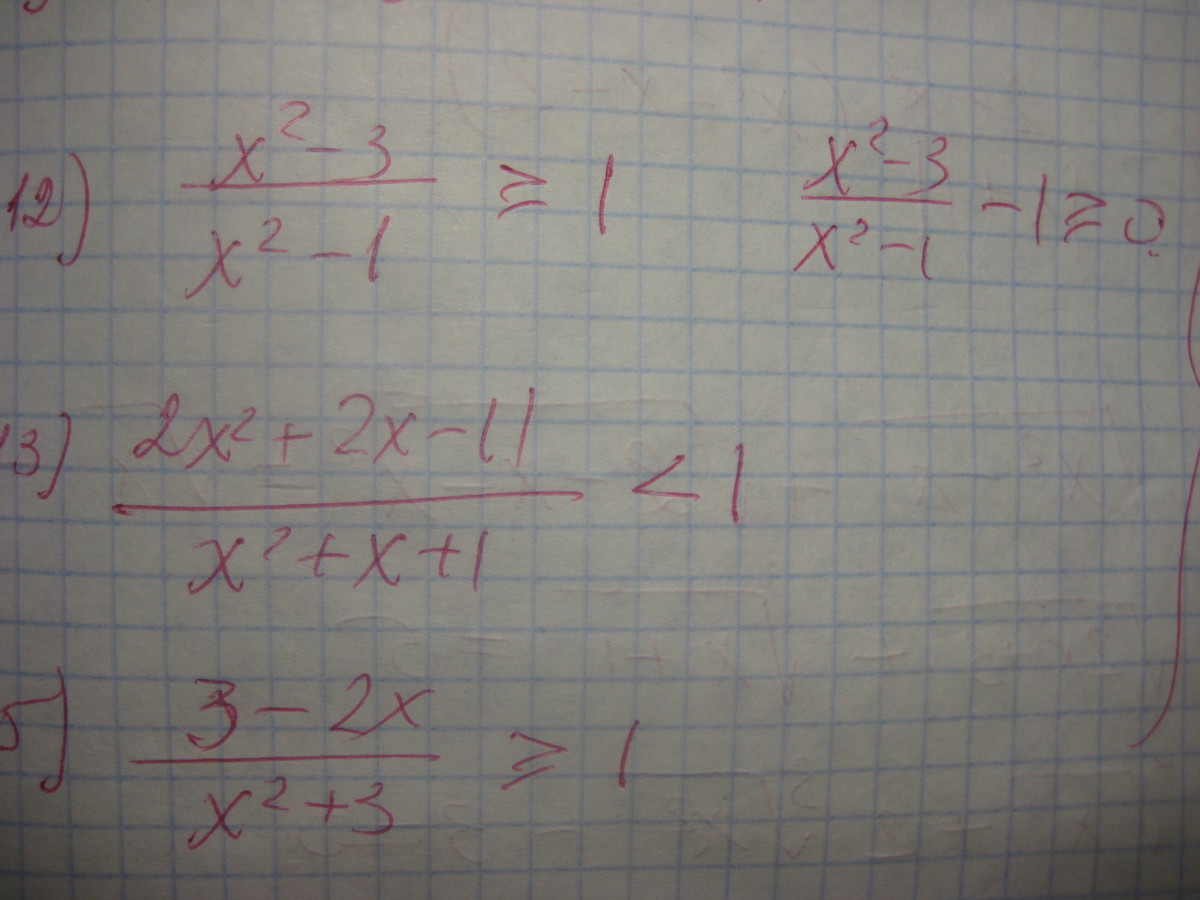 12) (x²-3)/(x²-1) ≥ 1    (x²-3)/(x²-1) - 1 ≥ 0
13) (2x²+2x-11)/(x²+x+1) < 1
5) (3-2x)/(x²+3) ≥ 1